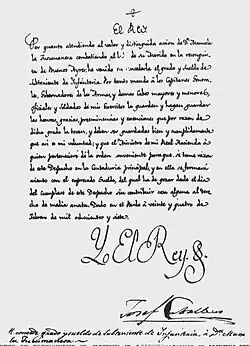 El Rey
Por quanto atendiendo al valor y distinguida accion de Dª Manuela
la Tucumanesa combatiendo al lado de su Marido en la reconquista
de Buenos Ayres, he venido en concederla el grado y sueldo de
Subteniente de Infantería. Por tanto mando a los Capitanes Genera-
les, Gobernadores de las Armas, y demas Cabos mayores y menores,
oficiales y Soldados de mis Exercitos la guarden y hagan guardar
las honras, gracias, preeminencias y exenciones que por razon de
dicho grado la tocan, y deben ser guardadas bien y cumplidamente
que asi es mi voluntad; y que el Ministro de mi Real Hacienda á
quien perteneciere dé la orden conveniente para que se tome razon
de este Despacho en la Contaduria principal, y en ella se formará
asiento con el expresado Sueldo, del qual ha de gozar desde el dia
del Cumplase de este Despacho sin contribuir cosa alguna al dro-
cho de media anata. Dado en el Pardo á veinte y quatro de
Febrero de mil ochocientos y siete.
Yo El Rey
Josef Caballero
V. concede grado y sueldo de Subteniente de Infantería, á Dña. Manue
la Tucumanesa